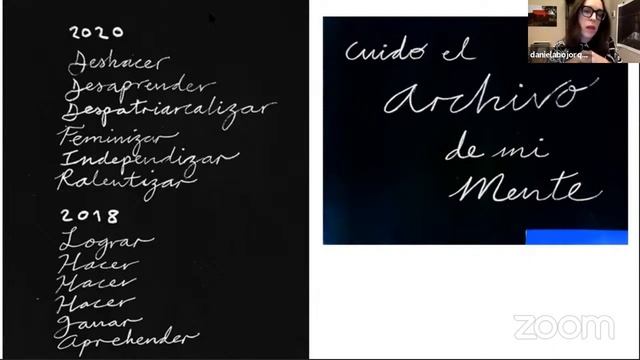 2020
Deshacer
Desaprender
Despatriarcalizar
Feminizar
Independizar
Ralentizar
2018
Lograr
Hacer
Hacer
Hacer
ganar
Aprehender
cuido el
archivo
de mi
Mente
danielabojorq...
zoom